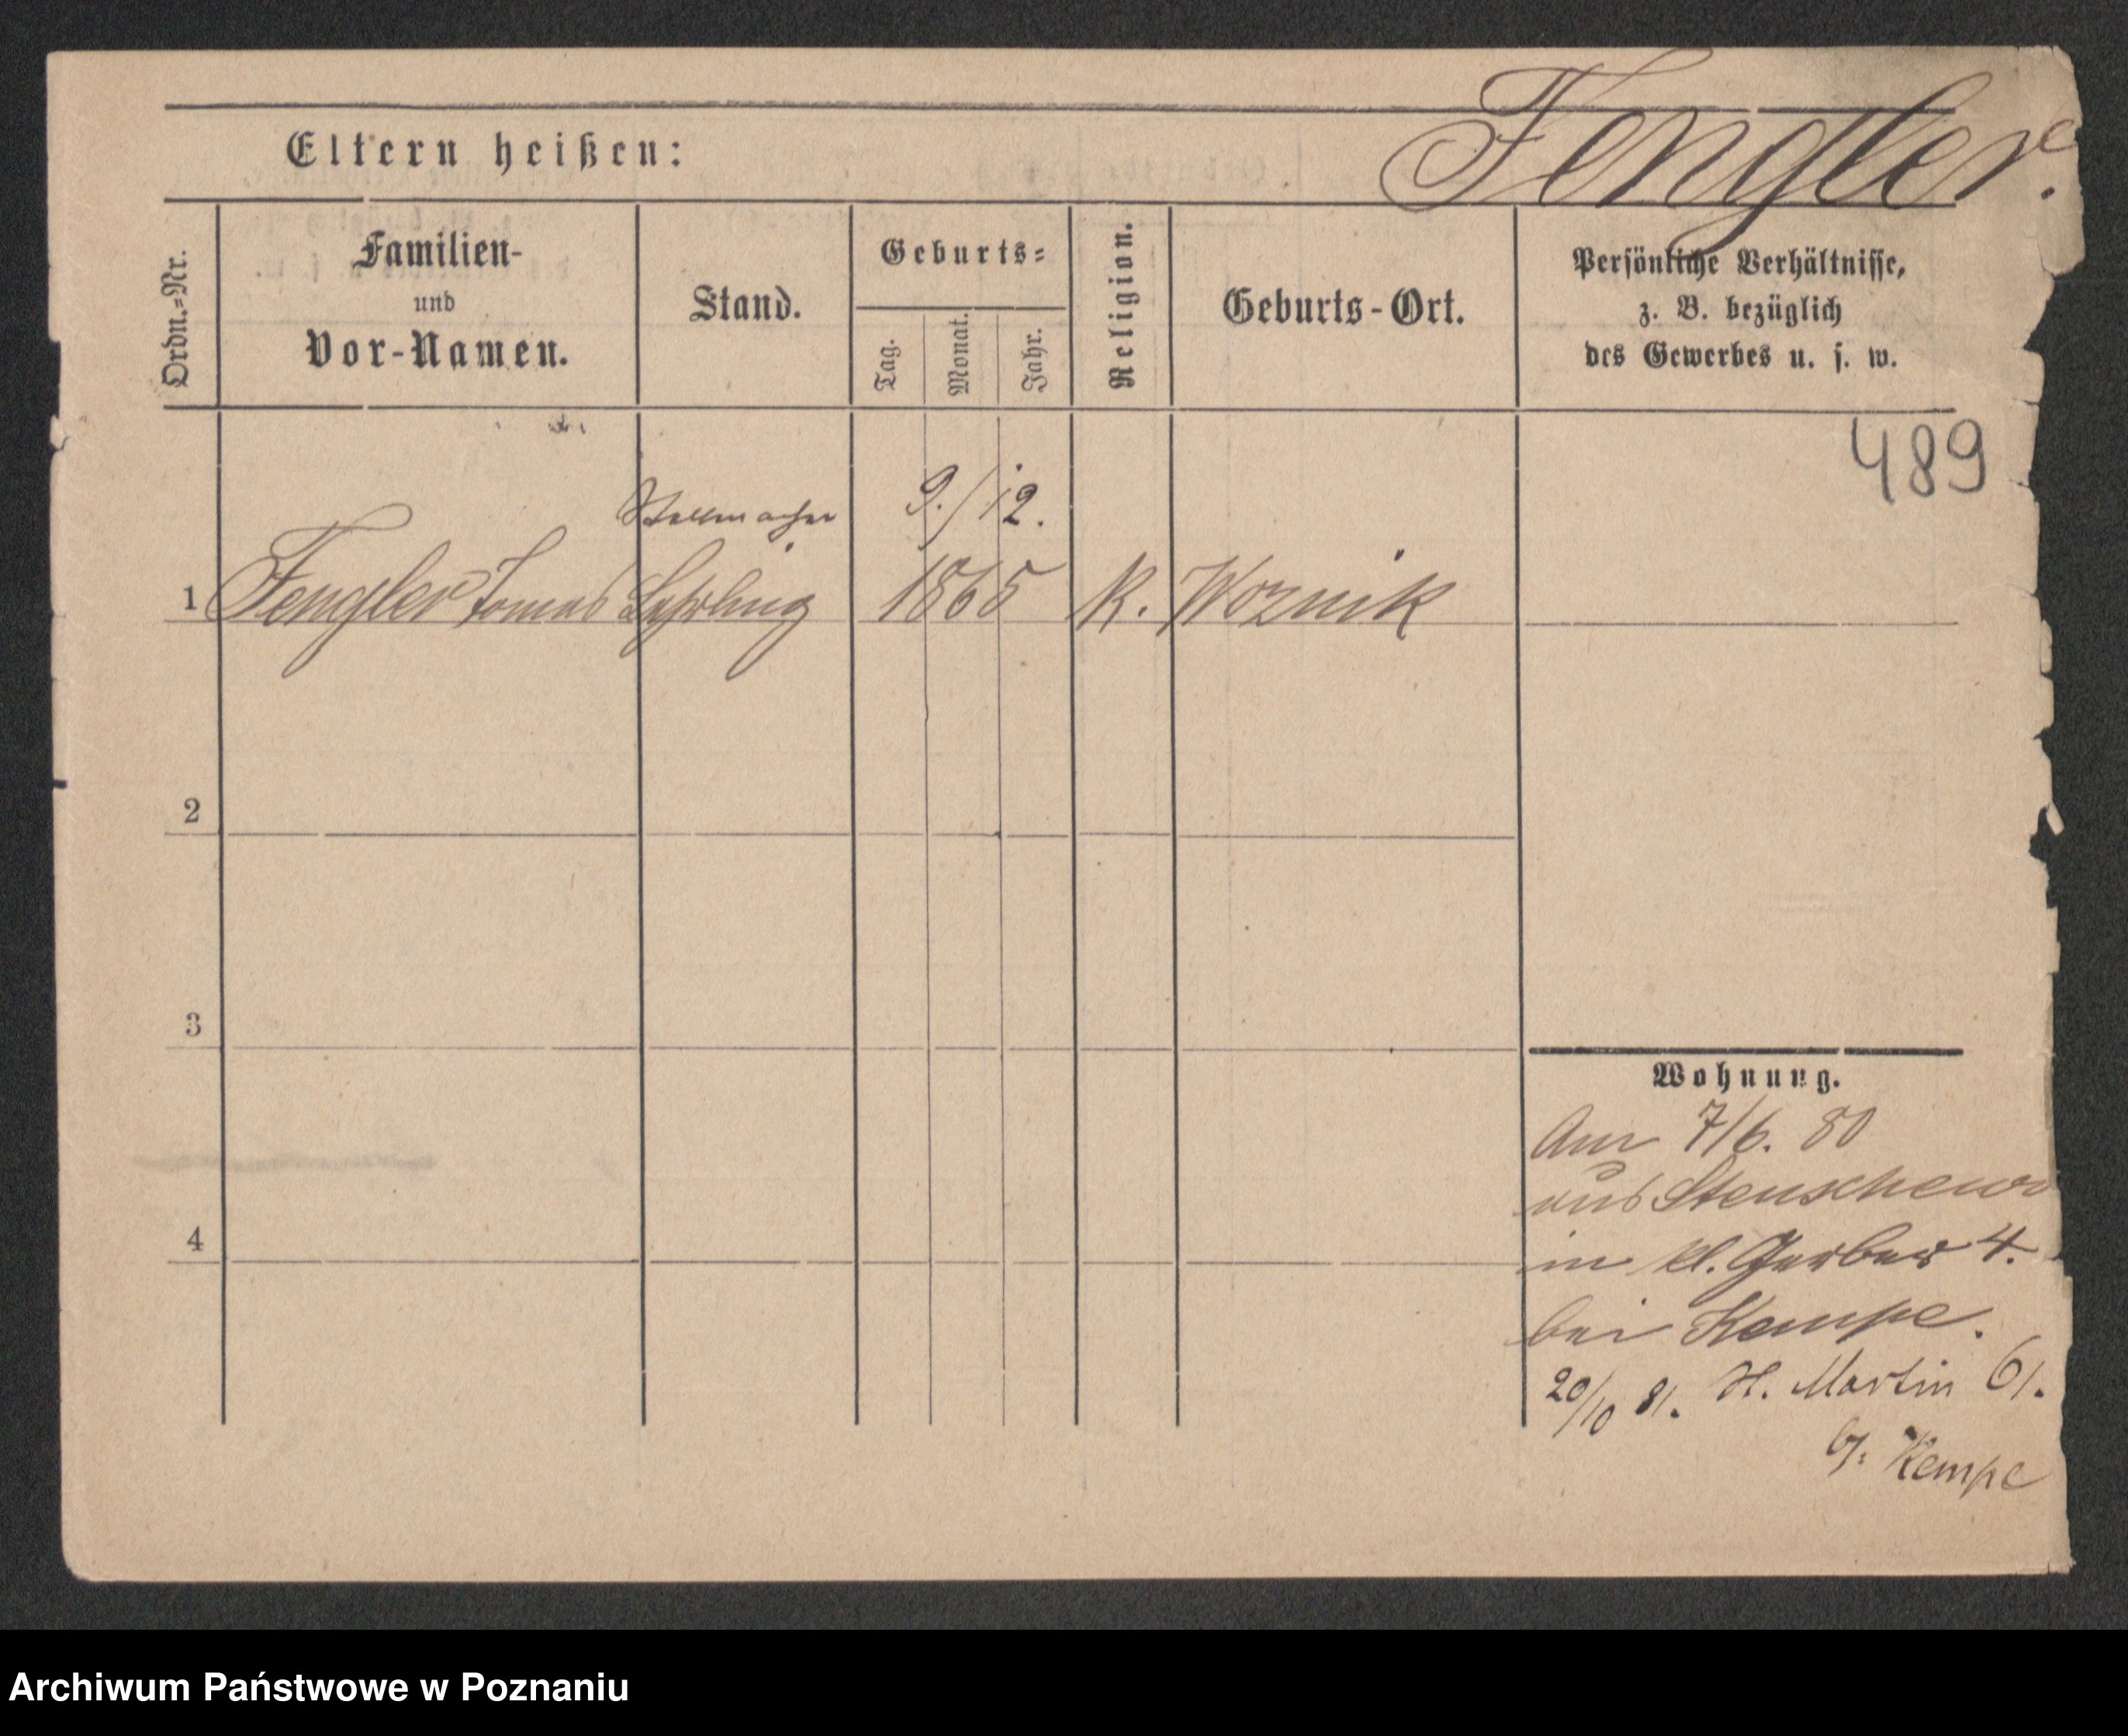 Fengler.
Eltern heißen:
Ordn.=Nr.
Familien-
und
Vor-Namen.
Stand.
Geburts=
Tag.
Monat.
Jahr.
Religion.
Geburts-Ort.
Persönliche Verhältnisse,
z. B. bezüglich
des Gewerbes u. s. w.
489
Stellmacher 9./12.
1 Fengler Tomas Lehrling 1865 K. Woznik
2
3
4
Wohnung.
Am 7/6. 80
aus Stenschewo
in kl. Gerber 4.
bei Kempe.
20/10 81. St. Martin 61.
b/. Kempe
Archiwum Państwowe w Poznaniu